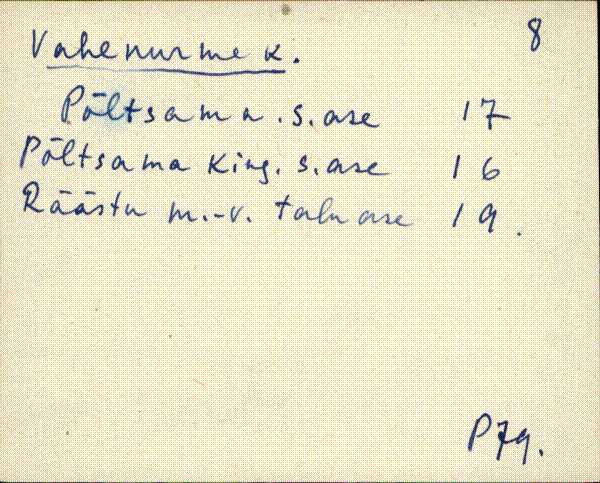 Vahenurme k. 8
Põltsama . s. ase 17
Põltsama King. s. ase 16
Räästu m.-v. talu ase 19.
P79.